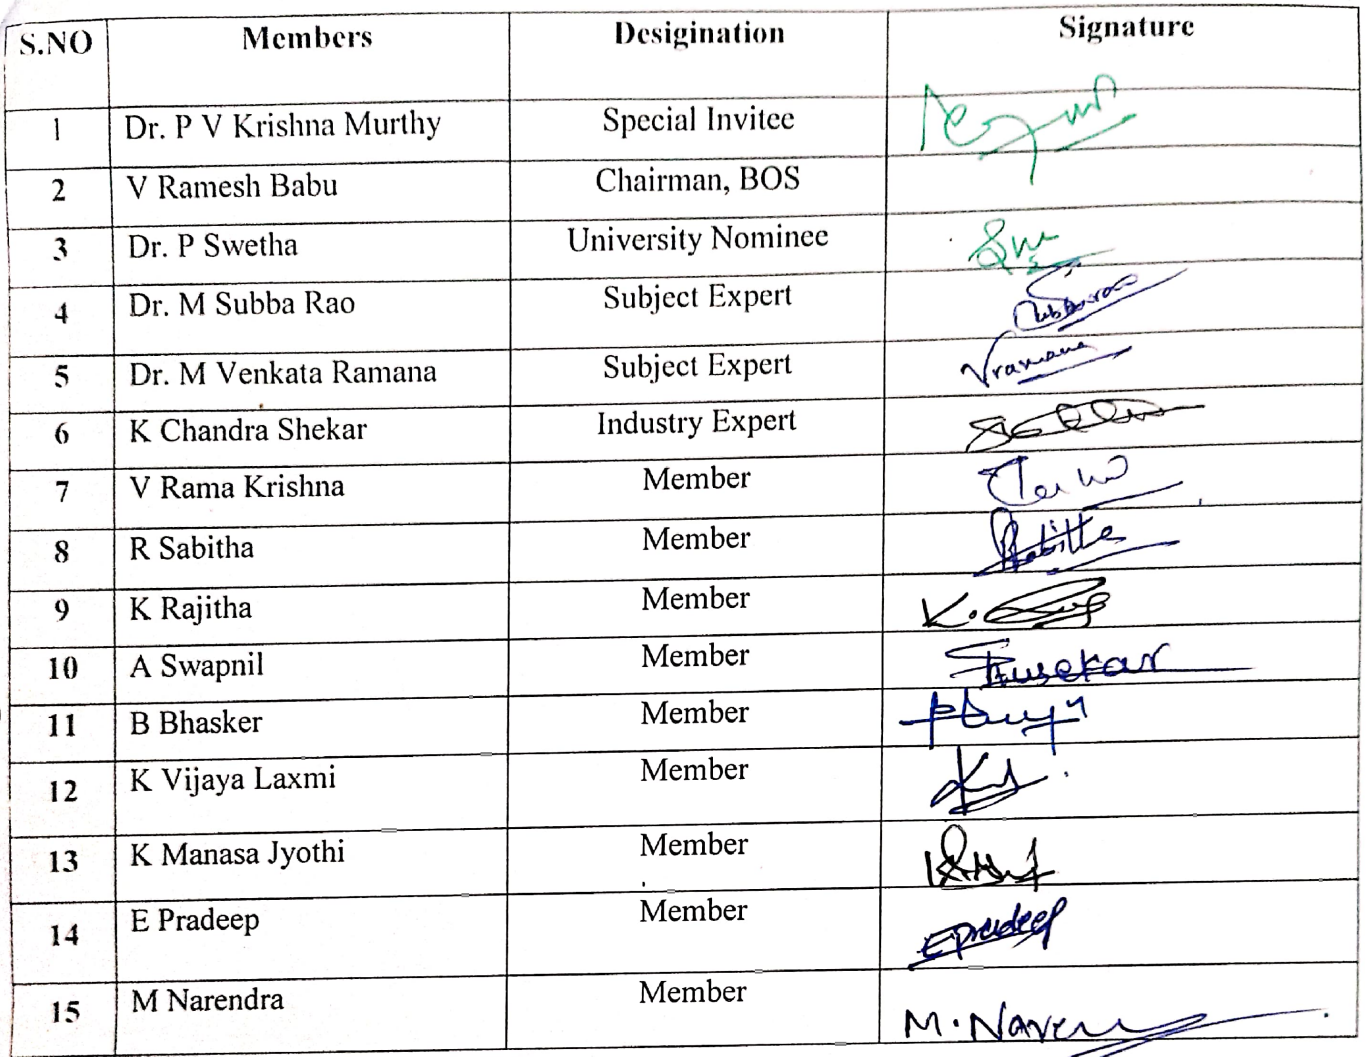 S.NO Members Desigination Signature
1 Dr. P V Krishna Murthy Special Invitee
2 V Ramesh Babu Chairman, BOS
3 Dr. P Swetha University Nominee
4 Dr. M Subba Rao Subject Expert
5 Dr. M Venkata Ramana Subject Expert Vramana
6 K Chandra Shekar Industry Expert
7 V Rama Krishna Member
8 R Sabitha Member
9 K Rajitha Member K.
10 A Swapnil Member
11 B Bhasker Member
12 K Vijaya Laxmi Member
13 K Manasa Jyothi Member
14 E Pradeep Member EPradeep
15 M Narendra Member M.Naren